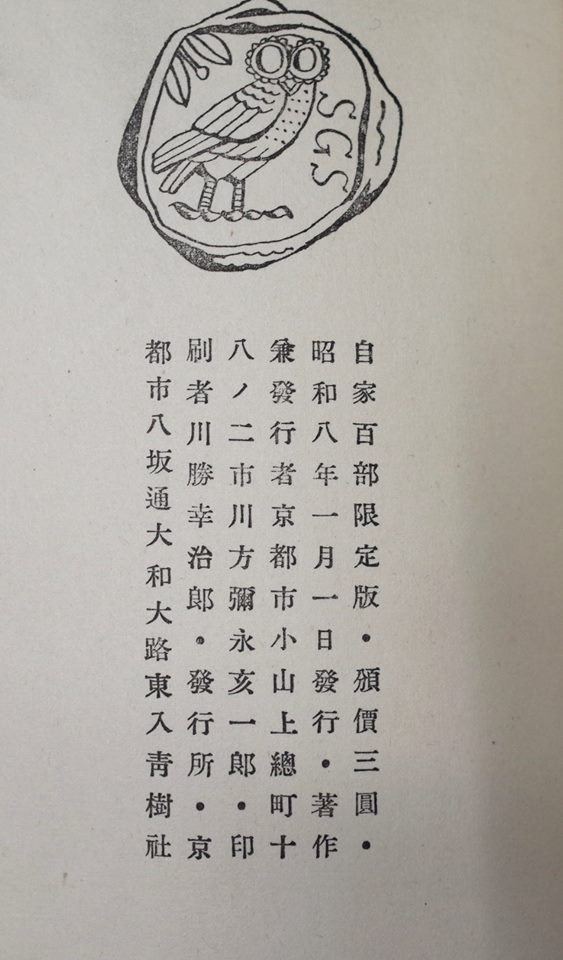 SGS
自家百部限定版・頒價三圓・
昭和八年一月一日發行・著作
兼發行者京都市小山上總町十
八ノ二市川方彌永亥一郎・印
刷者川勝幸治郎・發行所・京
都市八坂通大和大路東入靑樹社